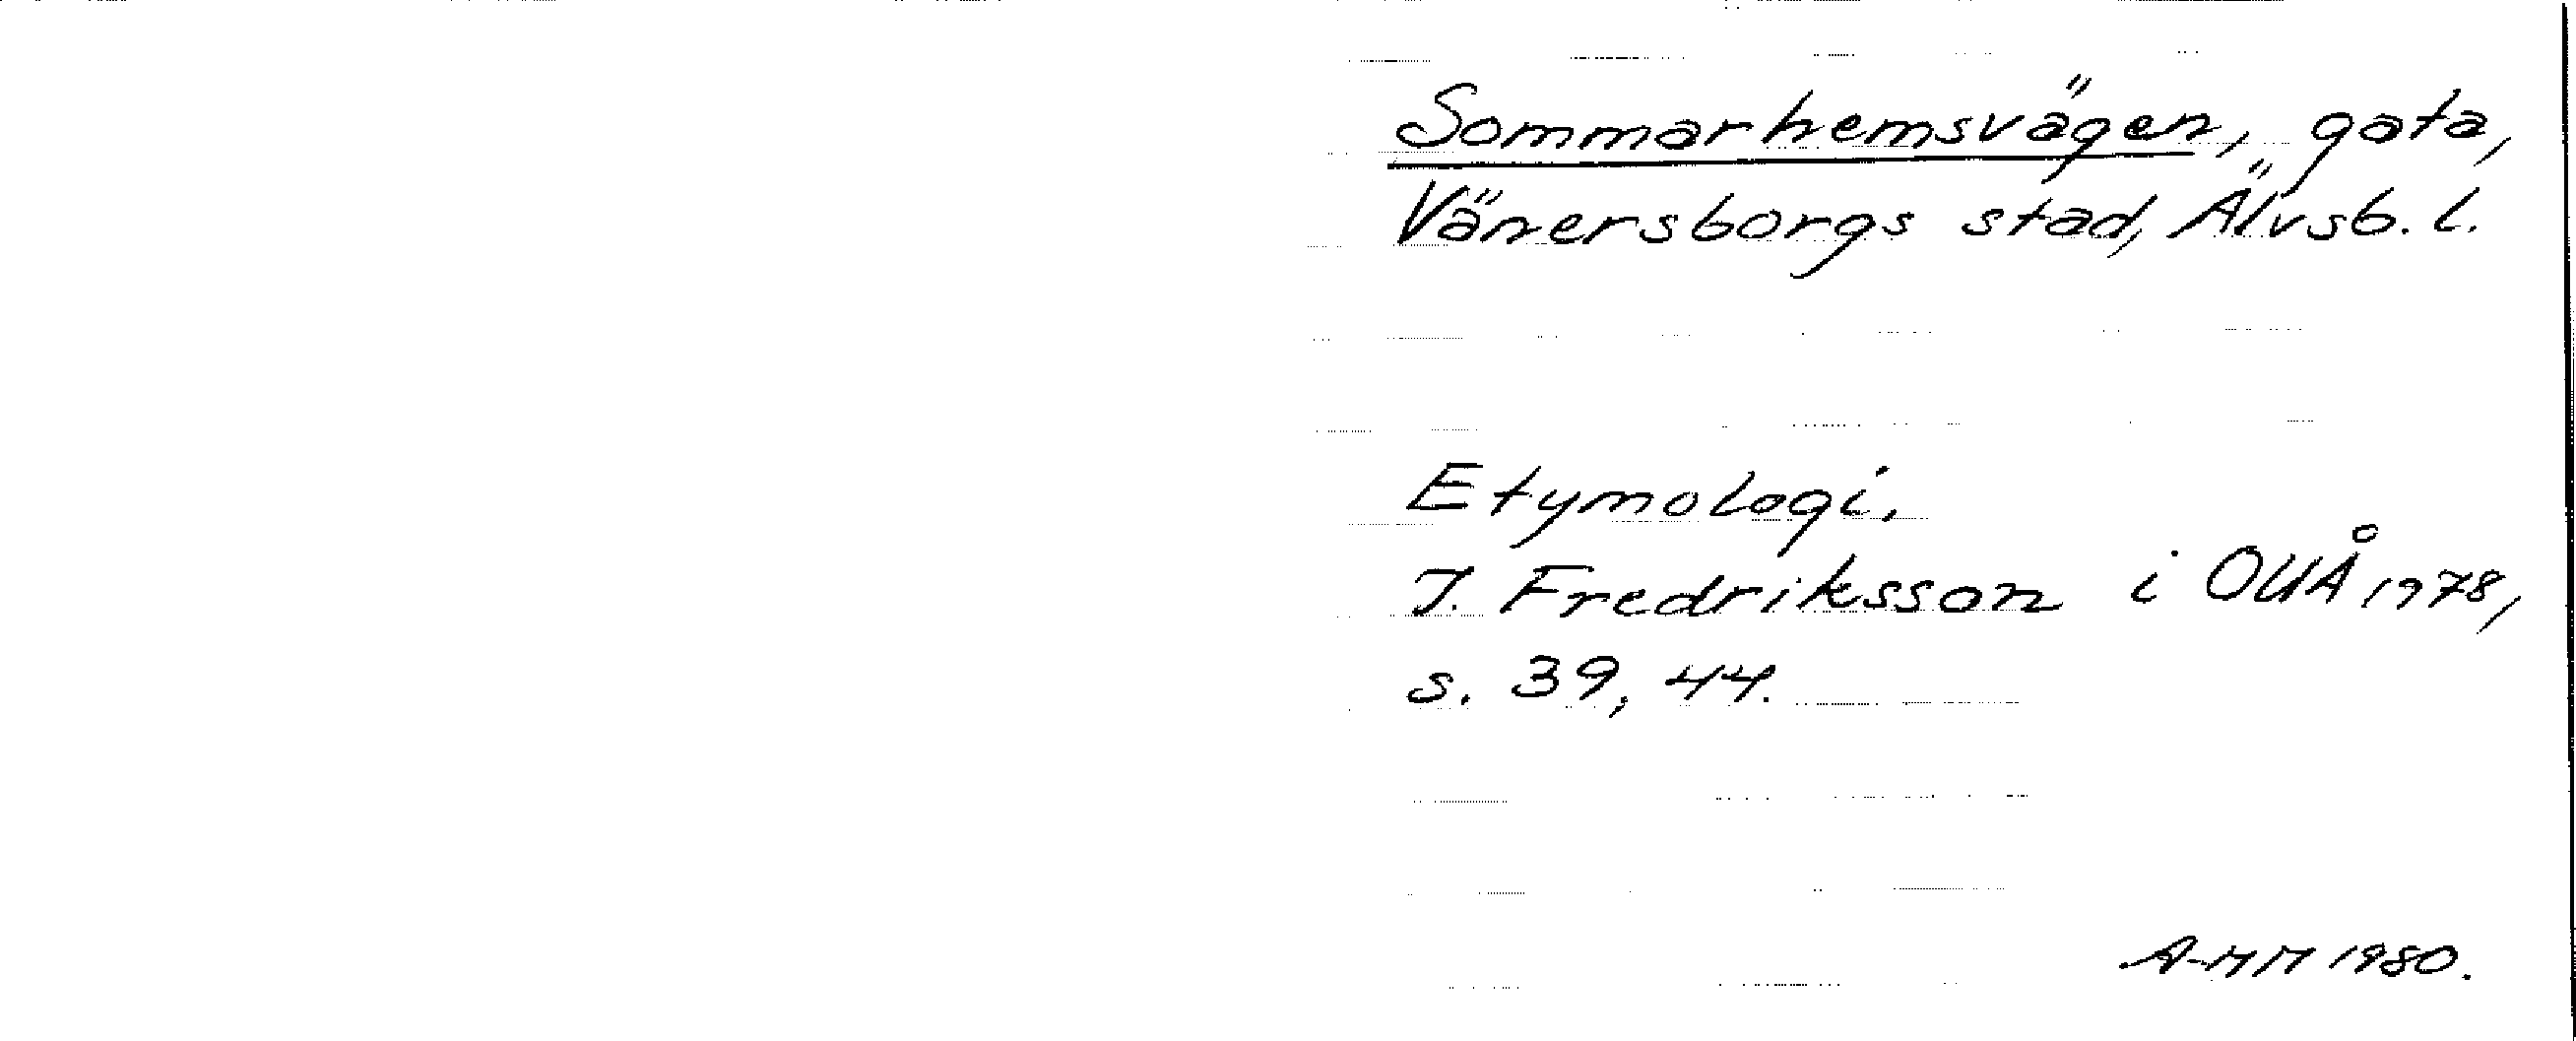 Sommarhemsvägen, gata,
Vänersborgs stad, Älvsb. l.
Etymologi.
I. Fredriksson i OUÅ 1978,
s. 39, 44.
A-MM 1980.